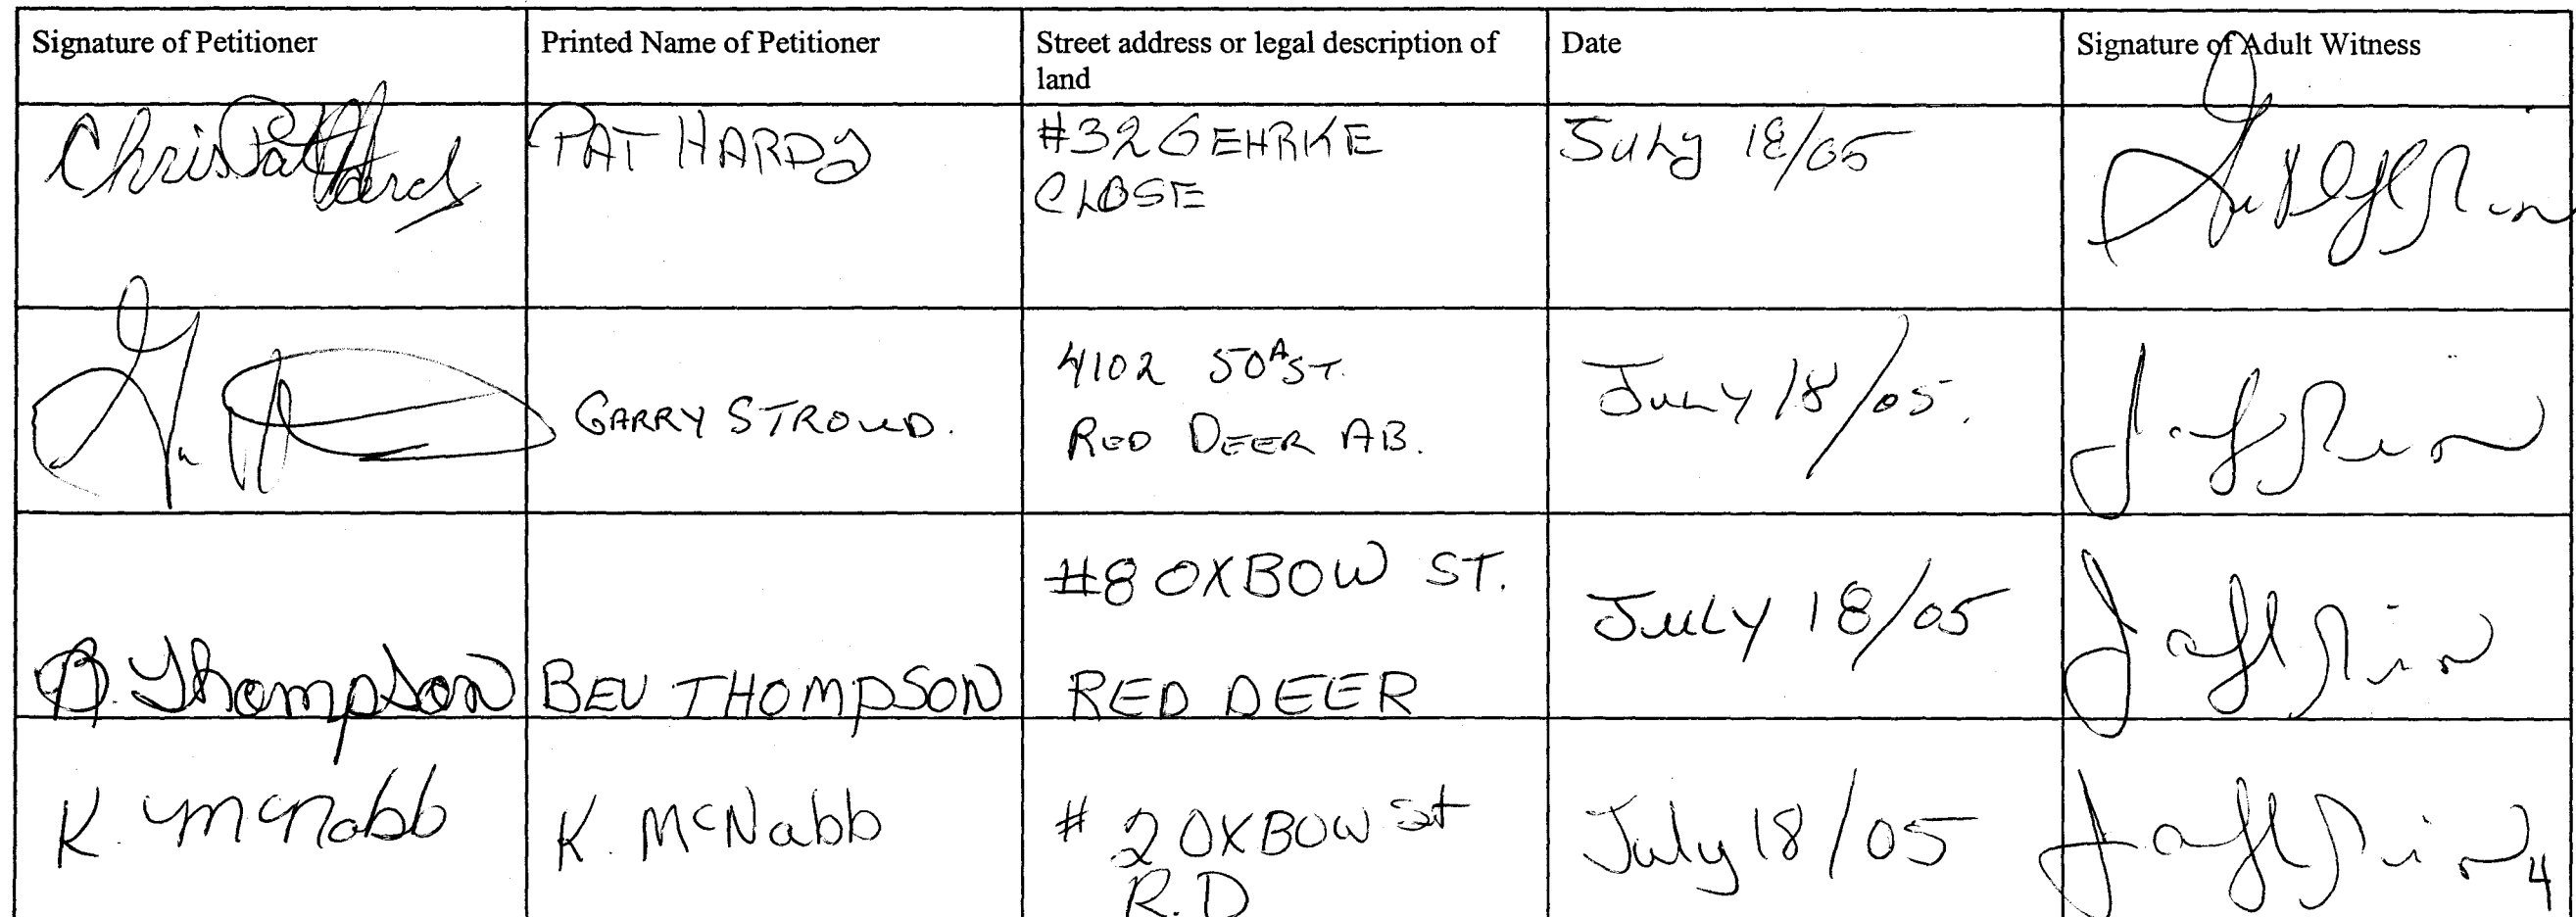 Signature of Petitioner
Printed Name of Petitioner
Street address or legal description of
land
Date
Signature of Adult Witness
Chris Pat Hardy
PAT HARDY
#32 GEHRKE
CLOSE
July 18/05
GARRY STROUD.
4102 50ᴬ ST.
RED DEER AB.
July 18/05.
B. Thompson
BEV THOMPSON
#8 OXBOW ST.
RED DEER
JULY 18/05
K. McNabb
K. McNabb
# 2 OXBOW St
R.D
July 18/05
4